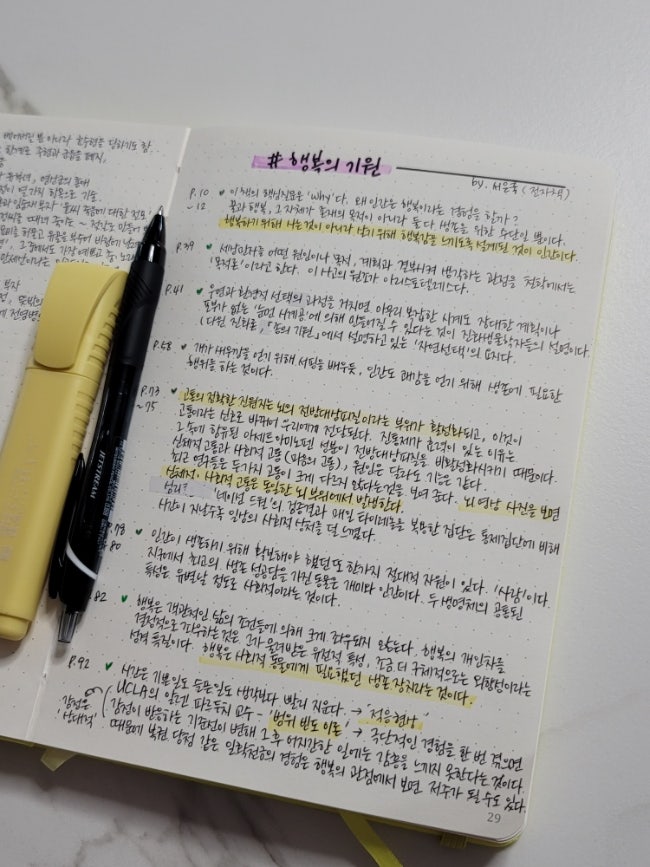 # 행복의 기원
by. 서은국 (전자책)
P.10 ~12 ♥ 이 책의 핵심질문은 'Why'다. 왜 인간은 행복이라는 경험을 할까?
꿀과 행복, 그 자체가 존재의 목적이 아니라 둘 다 생존을 위한 수단일 뿐이다.
행복하기 위해 사는 것이 아니라 살기 위해 행복감을 느끼도록 설계된 것이 인간이다.
P.39 ♥ 세상만사를 어떤 원인이나 목적, 계획과 결부시켜 생각하는 관점을 철학에서는
'목적론'이라고 한다. 이 사고의 원조가 아리스토텔레스다.
P.41 ♥ 우연과 환경적 선택의 과정을 거치면 아무리 복잡한 시계도 장대한 계획이나
포부가 없는 '눈먼 시계공'에 의해 만들어질 수 있다는 것이 진화생물학자들의 설명이다.
(다윈 진화론, 「종의 기원」에서 설명하고 있는 '자연선택'의 요지다.
P.58 ♥ 개가 새우깡을 얻기 위해 서핑을 배우듯, 인간도 쾌감을 얻기 위해 생존에 필요한
행위를 하는 것이다.
P.73 ~75 ♥ 고통의 정확한 진원지는 뇌의 전방대상피질이라는 부위가 활성화되고, 이것이
고통이라는 신호로 바뀌어 우리에게 전달된다. 진통제가 효력이 있는 이유는
그 속에 함유된 아세트아미노펜 성분이 전방대상피질을 비활성화시키기 때문이다.
신체적 고통과 사회적 고통(마음의 고통), 원인은 달라도 기능은 같다.
최근 연구들은 두가지 고통이 크게 다르지 않다는것을 보여 준다. 뇌 영상 사진을 보면
신체적·사회적 고통은 동일한 뇌 부위에서 발생한다.
심리 '네이선 드월'의 검증결과 매일 타이레놀을 복용한 집단은 통제집단에 비해
시간이 지날수록 일상의 사회적 상처를 덜 느꼈다.
78 80 ♥ 인간이 생존하기 위해 확보해야 했던 또 한가지 절대적 자원이 있다. '사람'이다.
지구에서 최고의 생존 성공담을 가진 동물은 개미와 인간이다. 두 생명체의 공통된
특성은 유별날 정도로 사회적이라는 것이다.
82 ♥ 행복은 객관적인 삶의 조건들에 의해 크게 좌우되지 않는다. 행복의 개인차를
결정적으로 좌우하는 것은 그가 물려받은 유전적 특성, 조금 더 구체적으로는 외향성이라는
성격 특질이다. 행복은 사회적 동물에게 필요했던 생존 장치라는 것이다.
P.92 ♥ 시간은 기쁜일도 슬픈일도 생각보다 빨리 지운다. → 적응현상
감정은 '상대적' UCLA의 알렌 파르두치 교수 - '범위 빈도 이론' → 극단적인 경험을 한 번 겪으면
감정이 반응하는 기준선이 변해 그 후 어지간한 일에는 감흥을 느끼지 못한다는 것이다.
때문에 복권 당첨 같은 일확천금의 경험은 행복의 관점에서 보면 저주가 될 수도 있다.
29
JETSTREAM